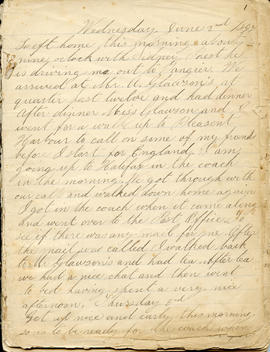 Wednesday June 2nd
I left home this morning about
nine o'clock with Sidney
is driving me out to Tangier. We
arrived at Mr. A. Glawson's at
quarter past twelve and had dinner
After dinner Miss Glawson and I
went for a walk up to Pleasent
Harbour to call on some of my friends
before I start for England. I am
going up to Halifax in the coach
in the morning. We got through with
our call and walked down home again
I got in the coach when it came along
and went over to the Post Office to
see if there was any mail for me. After
the mail was called I walked back
to Mr Glawson's and had tea. After tea
we had a nice chat and then went
to bed having spent a very nice
afternoon. Thursday 3rd
Got up nice and early this morning
so as to be ready for the coach when